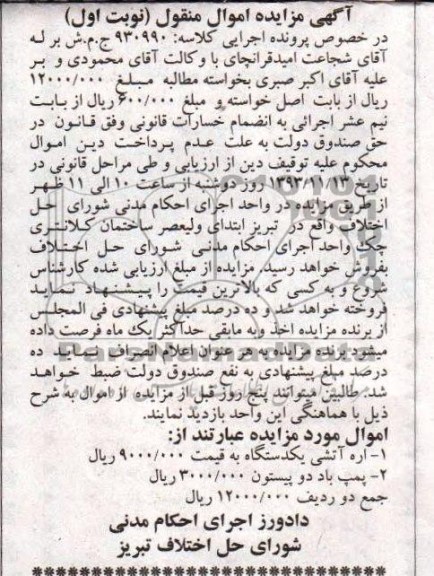 آگهی مزایده اموال منقول (نوبت اول)
در خصوص پرونده اجرایی کلاسه: ۹۳۰۹۹۰ ج.م.ش بر له
آقای شجاعت امیدقرانچای با وکالت آقای محمودی و بر
علیه آقای اکبر صبری بخواسته مطالبه مبلغ ۱۲۰۰۰/۰۰۰
ریال از بابت اصل خواسته و مبلغ ۶۰۰/۰۰۰ ریال از بابت
نیم عشر اجرائی به انضمام خسارات قانونی وفق قانون در
حق صندوق دولت به علت عدم پرداخت دین اموال
محکوم علیه توقیف دین از ارزیابی و طی مراحل قانونی در
تاریخ ۱۳۹۳/۱۰/۱۳ روز دوشنبه از ساعت ۱۰ الی ۱۱ ظهر
از طریق مزایده در واحد اجرای احکام مدنی شورای حل
اختلاف واقع در تبریز ابتدای ولیعصر ساختمان کلانتری
چک واحد اجرای احکام مدنی شورای حل اختلاف
بفروش خواهد رسید. مزایده از مبلغ ارزیابی شده کارشناس
شروع و به کسی که بالاترین قیمت را پیشنهاد نماید
فروخته خواهد شد و ده درصد مبلغ پیشنهادی فی المجلس
از برنده مزایده اخذ وبه مابقی حداکثر یک ماه فرصت داده
میشود برنده مزایده به هر عنوان اعلام انصراف نماید ده
درصد مبلغ پیشنهادی به نفع صندوق دولت ضبط خواهد
شد. طالبین میتوانند پنج روز قبل از مزایده از اموال به شرح
ذیل با هماهنگی این واحد بازدید نمایند.
اموال مورد مزایده عبارتند از:
۱- اره آتشی یکدستگاه به قیمت ۹۰۰۰/۰۰۰ ریال
۲- پمپ باد دو پیستون ۳۰۰۰/۰۰۰ ریال
جمع دو ردیف ۱۲۰۰۰/۰۰۰ ریال
دادورز اجرای احکام مدنی
شورای حل اختلاف تبریز